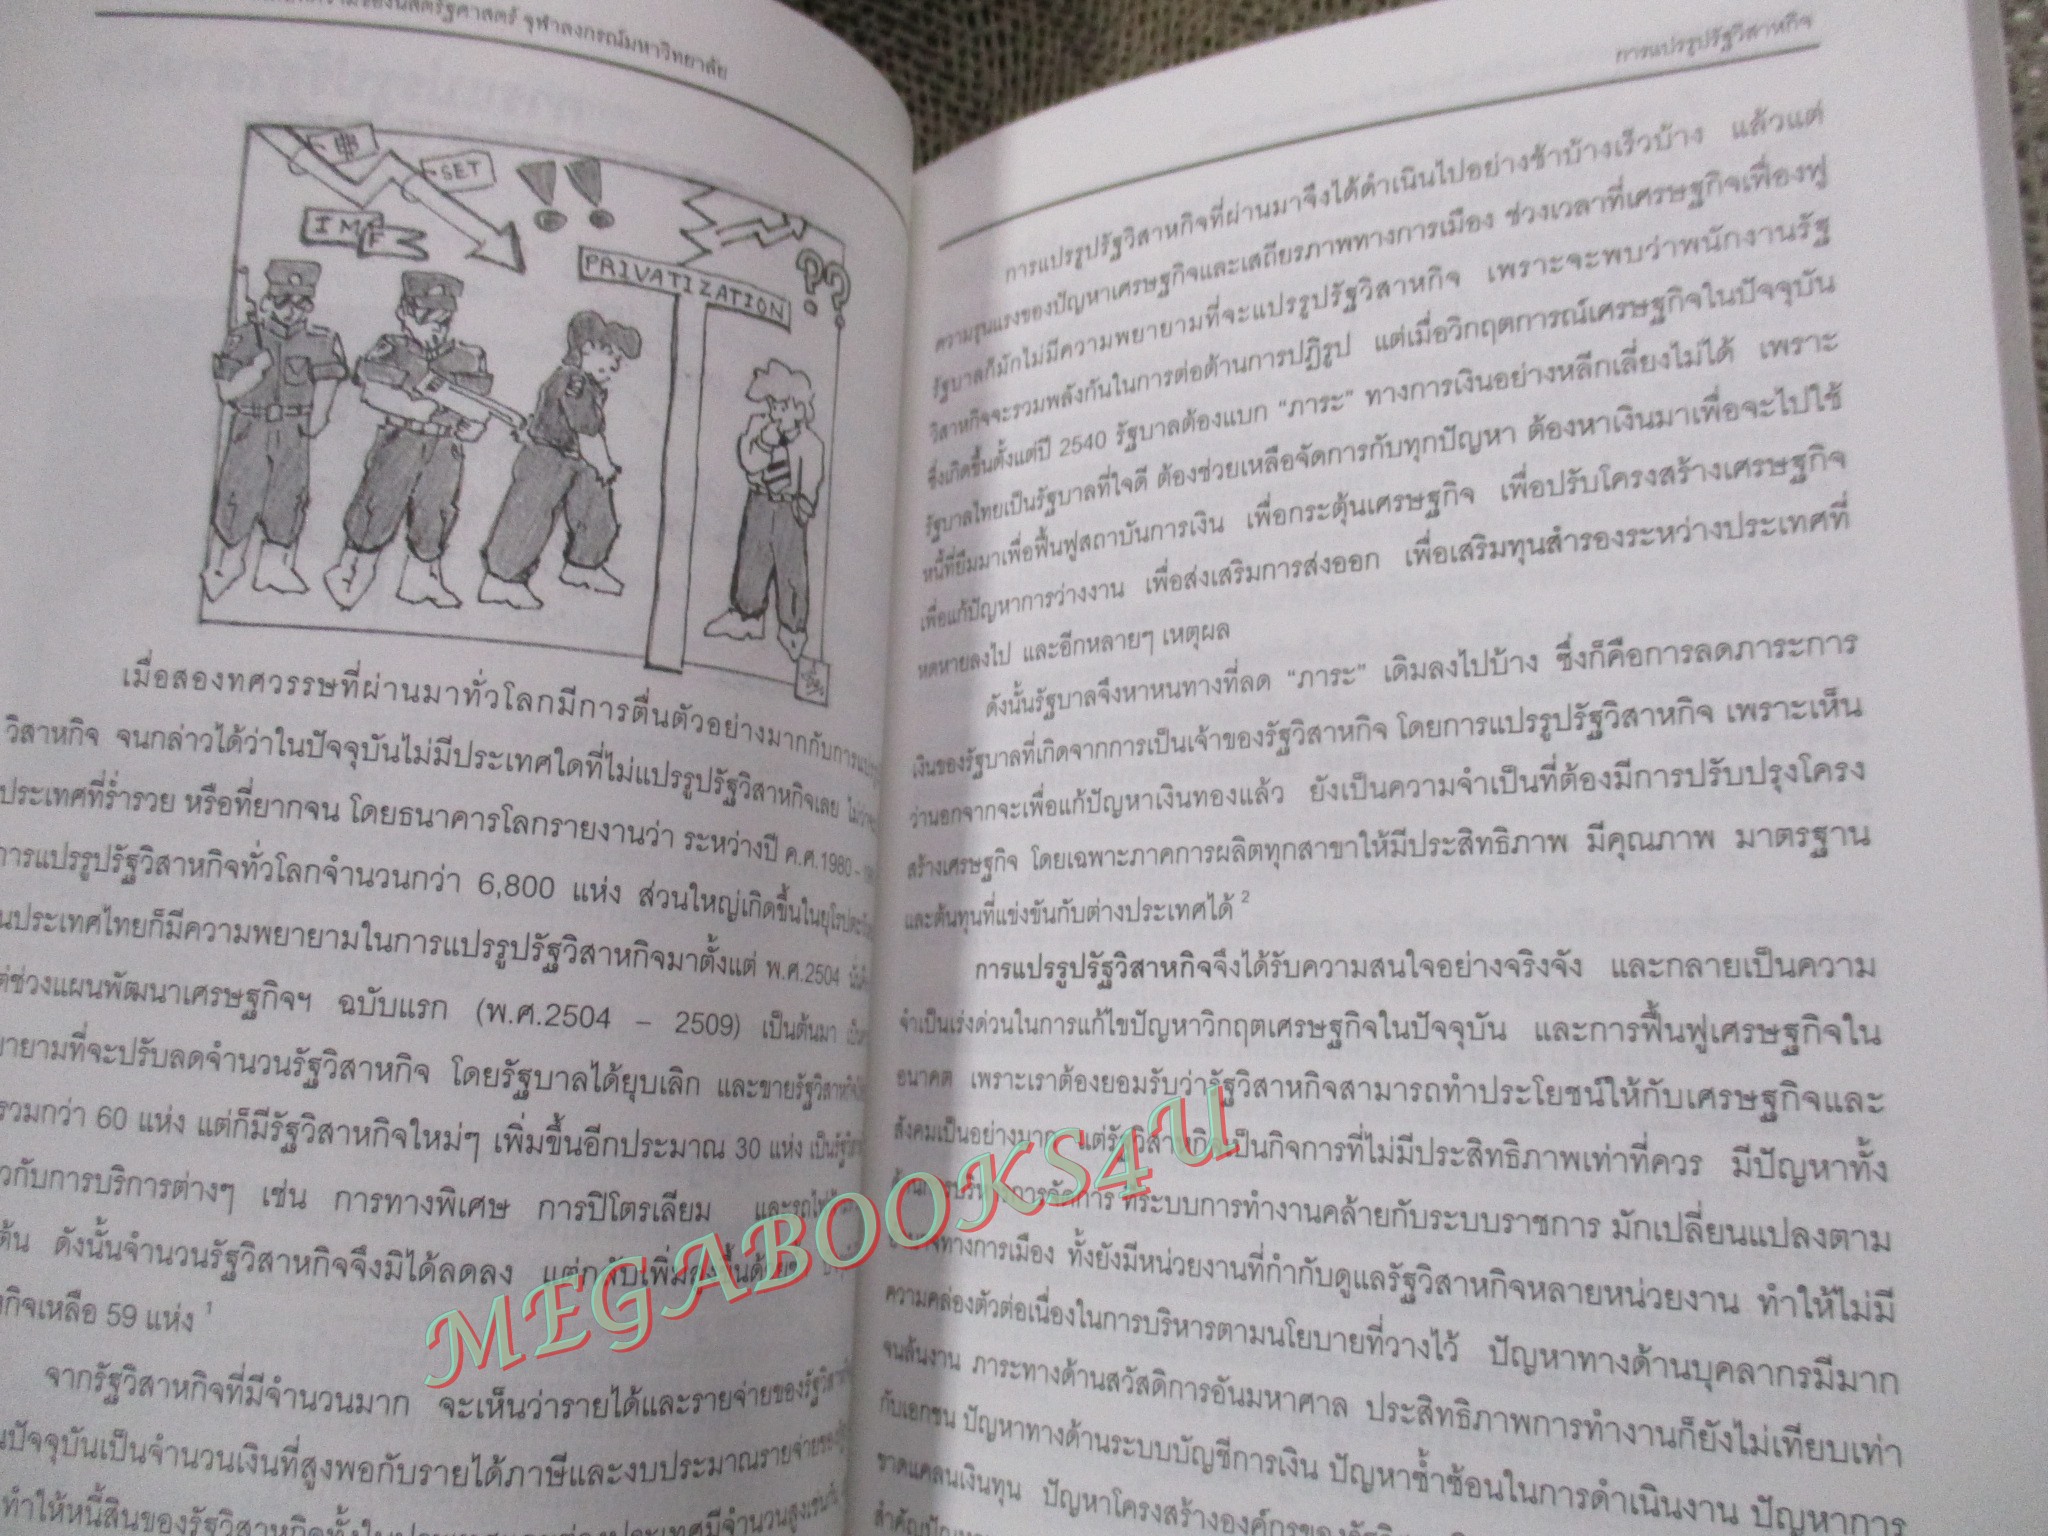 จุฬาลงกรณ์มหาวิทยาลัย
SET
IMF
PRIVATIZATION
เมื่อสองทศวรรษที่ผ่านมาทั่วโลกมีการตื่นตัวอย่างมากกับการ
วิสาหกิจ จนกล่าวได้ว่าในปัจจุบันไม่มีประเทศใดที่ไม่แปรรูปรัฐวิสาหกิจเลย
ประเทศที่ร่ำรวย หรือที่ยากจน โดยธนาคารโลกรายงานว่า ระหว่างปี ค.ศ.1980 –
การแปรรูปรัฐวิสาหกิจทั่วโลกจำนวนกว่า 6,800 แห่ง ส่วนใหญ่เกิดขึ้นใน
ประเทศไทยก็มีความพยายามในการแปรรูปรัฐวิสาหกิจมาตั้งแต่ พ.ศ.2504
ช่วงแผนพัฒนาเศรษฐกิจฯ ฉบับแรก (พ.ศ.2504 – 2509) เป็นต้นมา
ยายามที่จะปรับลดจำนวนรัฐวิสาหกิจ โดยรัฐบาลได้ยุบเลิก และขายรัฐวิสาหกิจ
รวมกว่า 60 แห่ง แต่ก็มีรัฐวิสาหกิจใหม่ๆ เพิ่มขึ้นอีกประมาณ 30 แห่ง
วกับการบริการต่างๆ เช่น การทางพิเศษ การปิโตรเลียม
ต้น ดังนั้นจำนวนรัฐวิสาหกิจจึงมิได้ลดลง แต่กลับเพิ่ม
กิจเหลือ 59 แห่ง 1
จากรัฐวิสาหกิจที่มีจำนวนมาก จะเห็นว่ารายได้และรายจ่ายของ
นปัจจุบันเป็นจำนวนเงินที่สูงพอกับรายได้ภาษีและงบประมาณรายจ่ายของ
ทำให้หนี้สินของรัฐวิสาหกิจทั้งใน
การแปรรูปรัฐวิสาหกิจ
การแปรรูปรัฐวิสาหกิจที่ผ่านมาจึงได้ดำเนินไปอย่างช้าบ้างเร็วบ้าง แล้วแต่
ความรุนแรงของปัญหาเศรษฐกิจและเสถียรภาพทางการเมือง ช่วงเวลาที่เศรษฐกิจเฟื่องฟู
รัฐบาลก็มักไม่มีความพยายามที่จะแปรรูปรัฐวิสาหกิจ เพราะจะพบว่าพนักงานรัฐ
วิสาหกิจจะรวมพลังกันในการต่อต้านการปฏิรูป แต่เมื่อวิกฤตการณ์เศรษฐกิจในปัจจุบัน
ซึ่งเกิดขึ้นตั้งแต่ปี 2540 รัฐบาลต้องแบก “ภาระ” ทางการเงินอย่างหลีกเลี่ยงไม่ได้ เพราะ
รัฐบาลไทยเป็นรัฐบาลที่ใจดี ต้องช่วยเหลือจัดการกับทุกปัญหา ต้องหาเงินมาเพื่อจะไปใช้
หนี้ที่ยืมมาเพื่อฟื้นฟูสถาบันการเงิน เพื่อกระตุ้นเศรษฐกิจ เพื่อปรับโครงสร้างเศรษฐกิจ
เพื่อแก้ปัญหาการว่างงาน เพื่อส่งเสริมการส่งออก เพื่อเสริมทุนสำรองระหว่างประเทศที่
หดหายลงไป และอีกหลายๆ เหตุผล
ดังนั้นรัฐบาลจึงหาหนทางที่ลด “ภาระ” เดิมลงไปบ้าง ซึ่งก็คือการลดภาระการ
เงินของรัฐบาลที่เกิดจากการเป็นเจ้าของรัฐวิสาหกิจ โดยการแปรรูปรัฐวิสาหกิจ เพราะเห็น
ว่านอกจากจะเพื่อแก้ปัญหาเงินทองแล้ว ยังเป็นความจำเป็นที่ต้องมีการปรับปรุงโครง
สร้างเศรษฐกิจ โดยเฉพาะภาคการผลิตทุกสาขาให้มีประสิทธิภาพ มีคุณภาพ มาตรฐาน
และต้นทุนที่แข่งขันกับต่างประเทศได้ 2
การแปรรูปรัฐวิสาหกิจจึงได้รับความสนใจอย่างจริงจัง และกลายเป็นความ
จำเป็นเร่งด่วนในการแก้ไขปัญหาวิกฤตเศรษฐกิจในปัจจุบัน และการฟื้นฟูเศรษฐกิจใน
อนาคต เพราะเราต้องยอมรับว่ารัฐวิสาหกิจสามารถทำประโยชน์ให้กับเศรษฐกิจและ
สังคมเป็นอย่างมาก แต่รัฐวิสาหกิจเป็นกิจการที่ไม่มีประสิทธิภาพเท่าที่ควร มีปัญหาทั้ง
ด้านการบริหารการจัดการ ที่ระบบการทำงานคล้ายกับระบบราชการ มักเปลี่ยนแปลงตาม
ทางการเมือง ทั้งยังมีหน่วยงานที่กำกับดูแลรัฐวิสาหกิจหลายหน่วยงาน ทำให้ไม่มี
ความคล่องตัวต่อเนื่องในการบริหารตามนโยบายที่วางไว้ ปัญหาทางด้านบุคลากรมีมาก
จนล้นงาน ภาระทางด้านสวัสดิการอันมหาศาล ประสิทธิภาพการทำงานก็ยังไม่เทียบเท่า
กับเอกชน ปัญหาทางด้านระบบบัญชีการเงิน ปัญหาซ้ำซ้อนในการดำเนินงาน ปัญหาการ
ขาดแคลนเงินทุน ปัญหาโครงสร้างองค์กรของ
MEGABOOKS4U